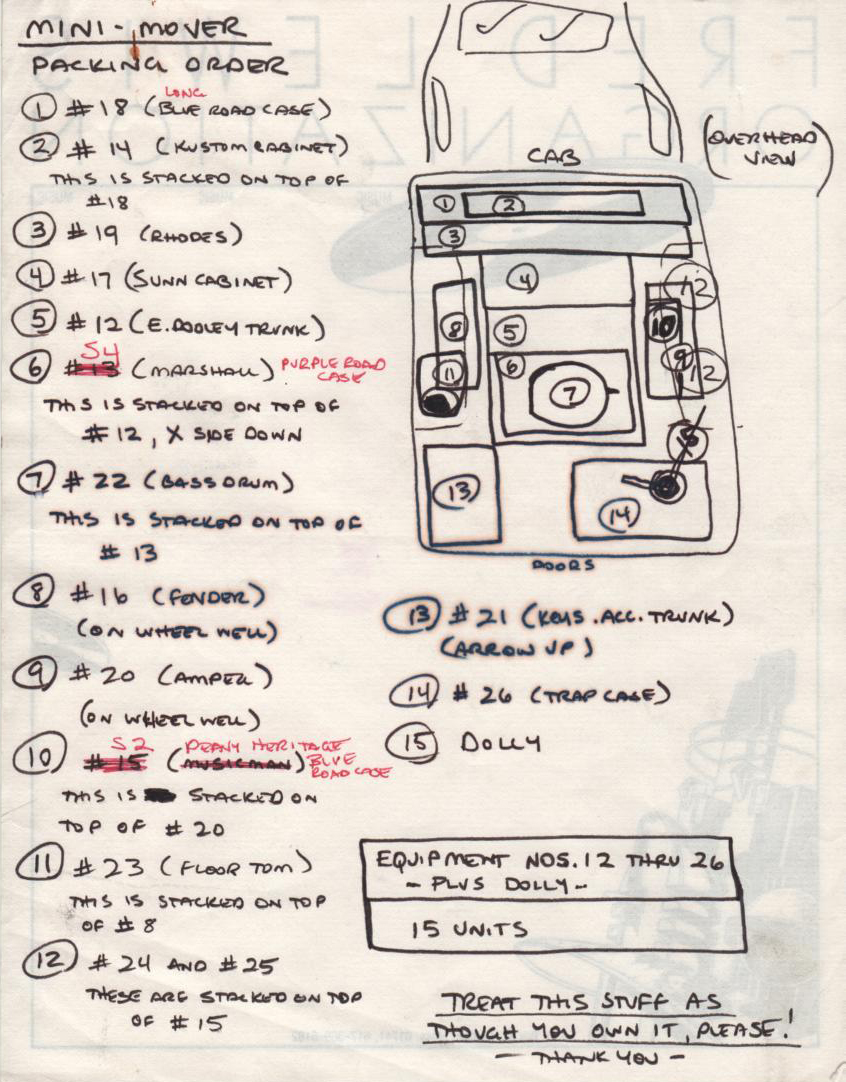 MINI-MOVER
PACKING ORDER
① #18 (LONG BLUE ROAD CASE)
② #14 (KUSTOM CABINET)
THIS IS STACKED ON TOP OF
#18
③ #19 (RHODES)
④ #17 (SUNN CABINET)
⑤ #12 (E. DOOLEY TRUNK)
⑥ S4 #13 (MARSHALL) PURPLE ROAD
CASE
THIS IS STACKED ON TOP OF
#12, X SIDE DOWN
⑦ #22 (BASS DRUM)
THIS IS STACKED ON TOP OF
#13
⑧ #16 (FENDER)
(ON WHEEL WELL)
⑨ #20 (AMPEG)
(ON WHEEL WELL)
S2 PEAVY HERITAGE
⑩ #15 (MUSICMAN) BLUE
ROAD CASE
THIS IS STACKED ON
TOP OF #20
⑪ #23 (FLOOR TOM)
THIS IS STACKED ON TOP
OF #8
⑫ #24 AND #25
THESE ARE STACKED ON TOP
OF #15
(OVERHEAD
VIEW)
CAB
① ②
③
④ 12
⑧ ⑤ 10
⑪ ⑥ ⑦ 9 12
15
⑬ ⑭
DOORS
⑬ #21 (KEYS. ACC. TRUNK)
(ARROW UP)
⑭ #26 (TRAP CASE)
⑮ DOLLY
EQUIPMENT NOS. 12 THRU 26
- PLUS DOLLY -
15 UNITS
TREAT THIS STUFF AS
THOUGH YOU OWN IT, PLEASE!
- THANK YOU -